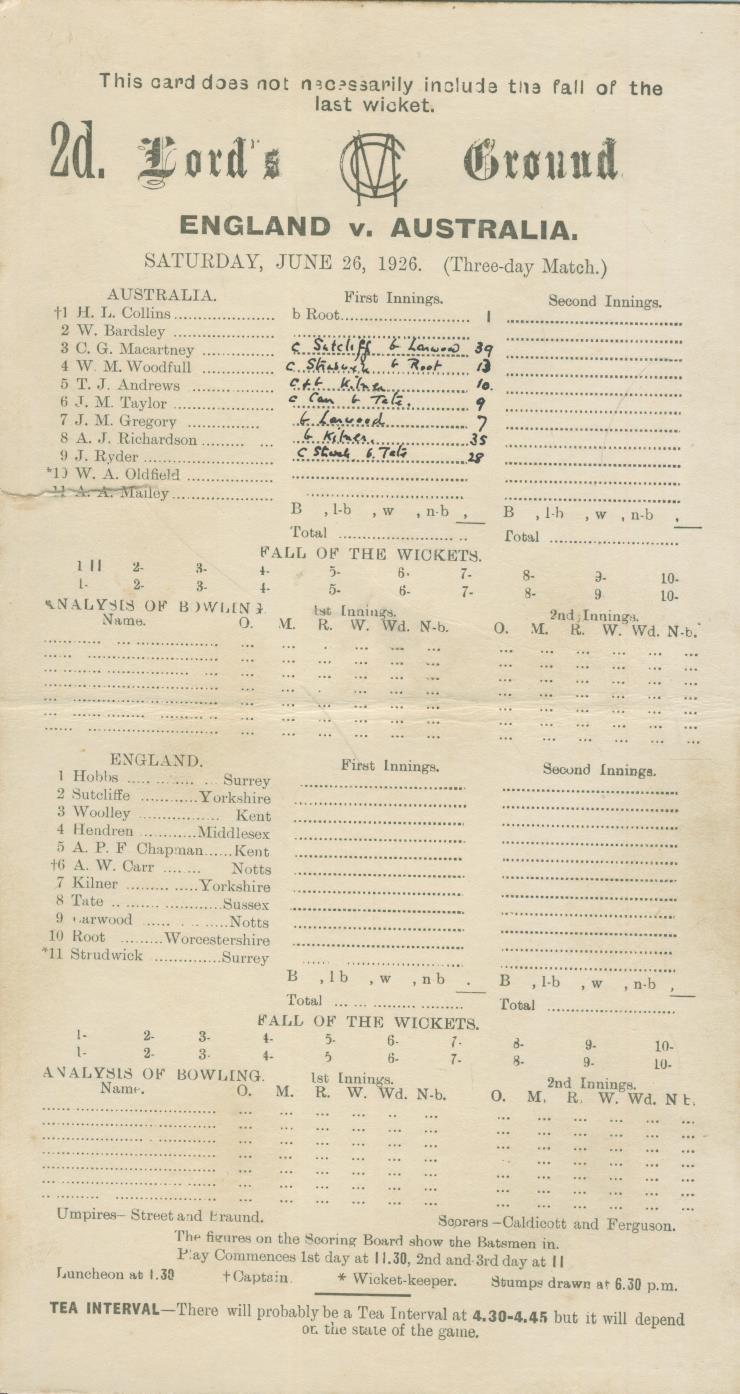 This card does not necessarily include the fall of the
last wicket.
2d. Lord's MCC Ground
ENGLAND v. AUSTRALIA.
SATURDAY, JUNE 26, 1926. (Three-day Match.)
AUSTRALIA. First Innings. Second Innings.
†1 H. L. Collins b Root 1
2 W. Bardsley
3 C. G. Macartney c Sutcliff b Larwood 39
4 W. M. Woodfull c Strudwick b Root 13
5 T. J. Andrews c & b Kilner 10
6 J. M. Taylor c Carr b Tate. 9
7 J. M. Gregory b Larwood 7
8 A. J. Richardson b Kilner. 35
9 J. Ryder c Strudk b Tate 28
*10 W. A. Oldfield
11 A. A. Mailey
B , l-b , w , n-b , B , l-b , w , n-b ,
Total Total
FALL OF THE WICKETS.
1 11 2- 3- 4- 5- 6- 7- 8- 9- 10-
1- 2- 3- 4- 5- 6- 7- 8- 9 10-
ANALYSIS OF BOWLING. 1st Innings. 2nd Innings.
Name. O. M. R. W. Wd. N-b. O. M. R. W. Wd. N-b.
ENGLAND. First Innings. Second Innings.
1 Hobbs Surrey
2 Sutcliffe Yorkshire
3 Woolley Kent
4 Hendren Middlesex
5 A. P. F Chapman Kent
†6 A. W. Carr Notts
7 Kilner Yorkshire
8 Tate Sussex
9 Larwood Notts
10 Root Worcestershire
*11 Strudwick Surrey
B , l b , w , n b . B , l-b , w , n-b ,
Total Total
FALL OF THE WICKETS.
1- 2- 3- 4- 5- 6- 7- 8- 9- 10-
1- 2- 3- 4- 5 6- 7- 8- 9- 10-
ANALYSIS OF BOWLING. 1st Innings. 2nd Innings.
Name. O. M. R. W. Wd. N-b. O. M. R. W. Wd. N b.
Umpires– Street and Braund. Scorers –Caldicott and Ferguson.
The figures on the Scoring Board show the Batsmen in.
Play Commences 1st day at 11.30, 2nd and 3rd day at 11
Luncheon at 1.30 †Captain * Wicket-keeper. Stumps drawn at 6.30 p.m.
TEA INTERVAL—There will probably be a Tea Interval at 4.30-4.45 but it will depend
on the state of the game.